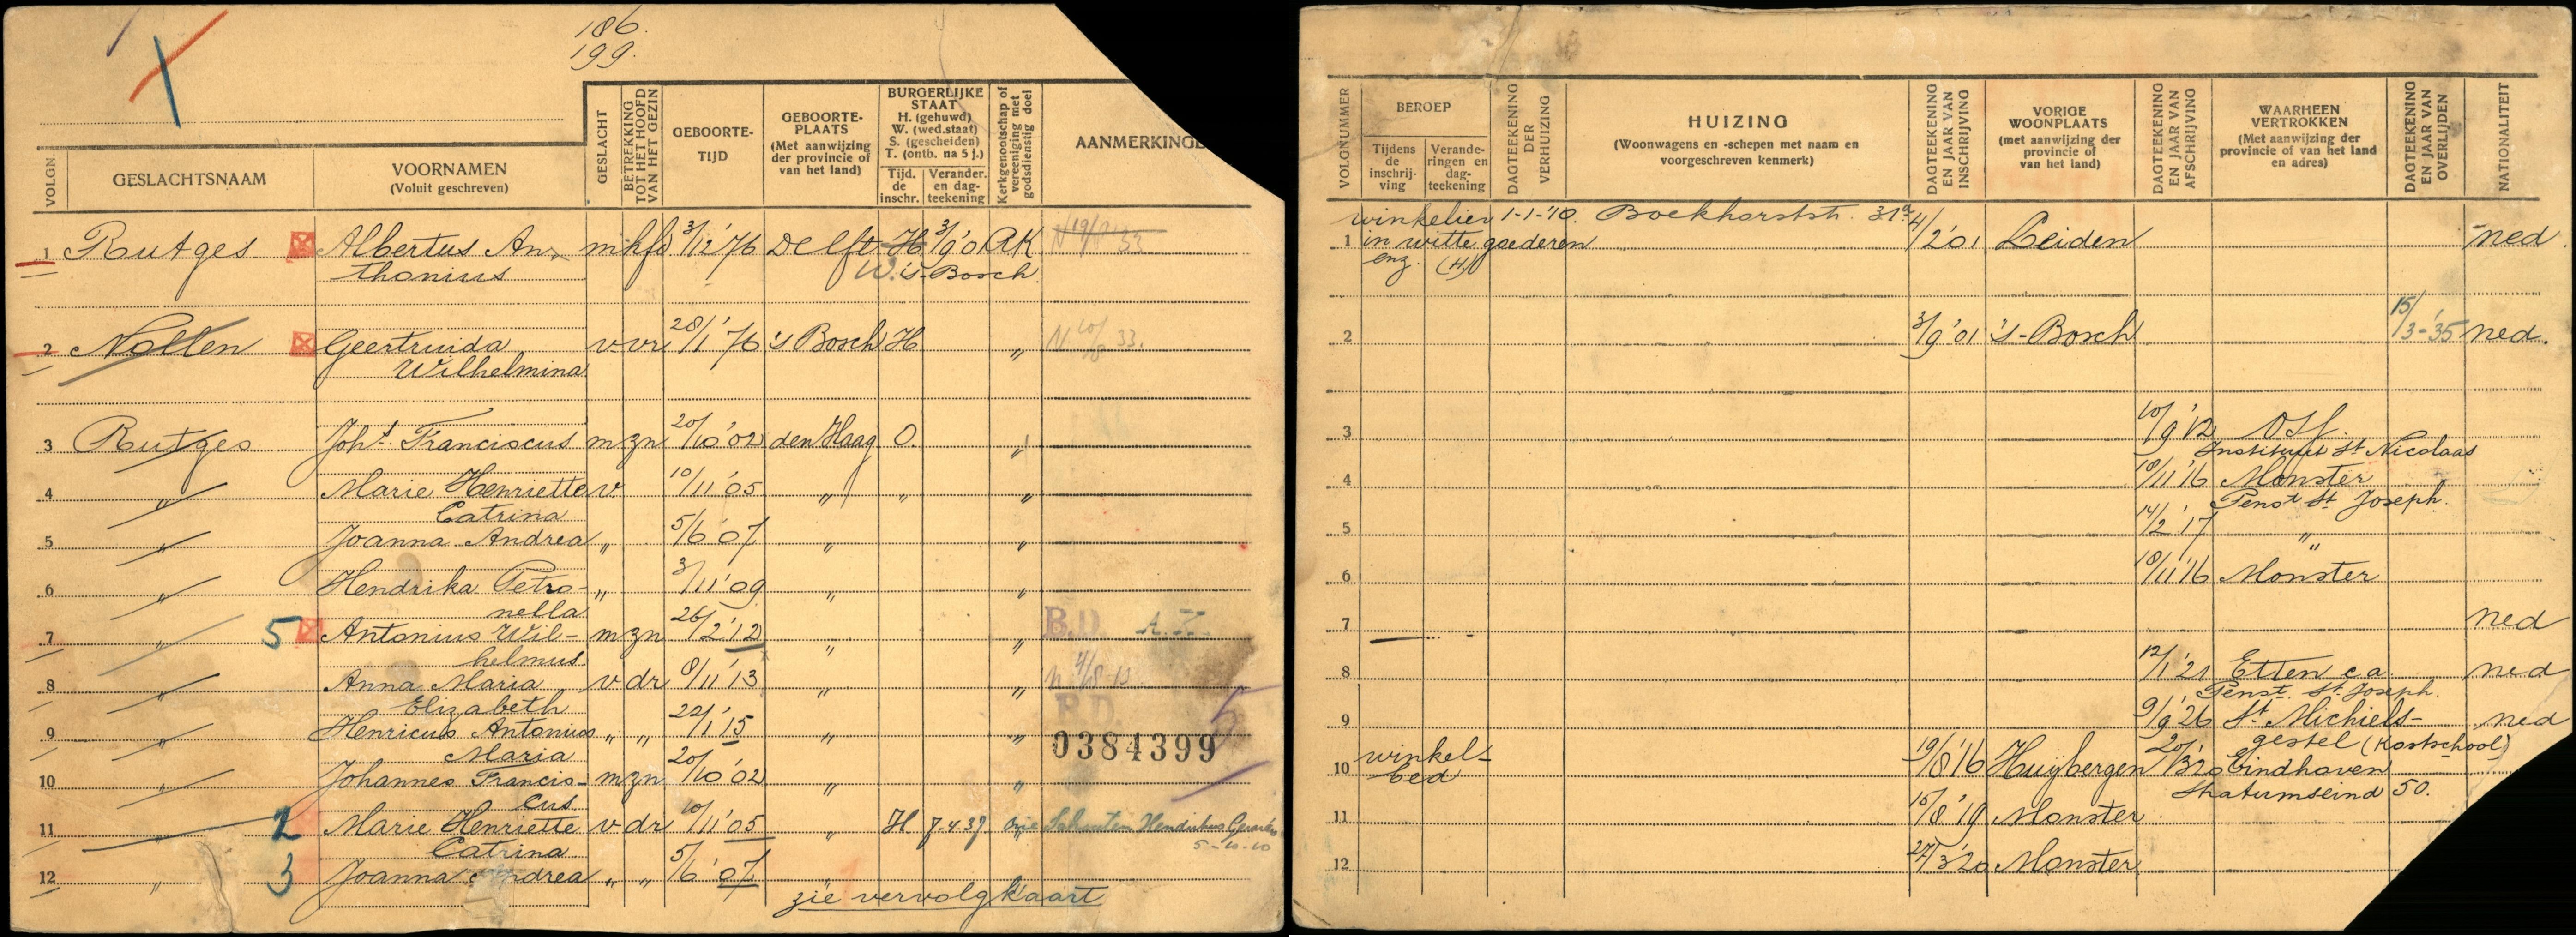 186.
199.
VOLGN.
GESLACHTSNAAM
VOORNAMEN
(Voluit geschreven)
GESLACHT
BETREKKING
TOT HET HOOFD
VAN HET GEZIN
GEBOORTE-
TIJD
GEBOORTE-
PLAATS
(Met aanwijzing
der provincie of
van het land)
BURGERLIJKE
STAAT
H. (gehuwd)
W. (wed.staat)
S. (gescheiden)
T. (ontb. na 5 j.)
Tijd.
de
inschr.
Verander.
en dag-
teekening
Kerkgenootschap of
vereeniging met
godsdienstig doel
AANMERKINGE
1 Rutges Albertus An- m hfd 3/12 '76 Delft H 3/9 '01 RK
thonius W. 's-Bosch
2 Nolten Geertruida v vr 28/1 '76 's Bosch H „ N 10/8 33.
Wilhelmina
3 Rutges Johs Franciscus m zn 20/10 '02 den Haag O. „
4 „ Marie Henriette v 10/11 '05 „ „ „
Catrina
5 „ Joanna Andrea „ 5/6 '07 „ „
6 „ Hendrika Petro- „ 3/11 '09 „ „
nella
7 „ 5 Antonius Wil- m zn 26/2 '12 „ „ B.D.
helmus
8 „ Anna Maria v dr 8/11 '13 „ „
Elizabeth
9 „ Henricus Antonius „ „ 22/1 '15 „ „ 0384399 5
Maria
10 „ Johannes Francis- m zn 20/10 '02 „ „
cus
11 „ 2 Marie Henriette v dr 10/11 '05 „ H 7-4 37 zie
Catrina
12 „ 3 Joanna Andrea „ „ 5/6 '07 „
zie vervolgkaart
VOLGNUMMER
BEROEP
Tijdens
de
inschrij-
ving
Verande-
ringen en
dag-
teekening
DAGTEEKENING
DER
VERHUIZING
HUIZING
(Woonwagens en -schepen met naam en
voorgeschreven kenmerk)
DAGTEEKENING
EN JAAR VAN
INSCHRIJVING
VORIGE
WOONPLAATS
(met aanwijzing der
provincie of
van het land)
DAGTEEKENING
EN JAAR VAN
AFSCHRIJVING
WAARHEEN
VERTROKKEN
(Met aanwijzing der
provincie of van het land
en adres)
DAGTEEKENING
EN JAAR VAN
OVERLIJDEN
NATIONALITEIT
winkelier 1-1-'10. Boekhorststr. 31a
1 in witte goederen 4/2 '01 Leiden ned
enz. (H)
2 3/9 '01 's-Bosch 15/3-'35 ned.
3 10/9 '12 Oss
Instituut St Nicolaas
4 18/11 '16 Monster
Penst St Joseph.
5 14/2 '17 „
6 18/11 '16 Monster
7 ned
8 12/1 '21 Etten ca. ned
Penst. St. Joseph.
9 9/9 '26 St Michiels- ned
gestel (Kostschool)
10 winkel- 19/8 '16 Huybergen 20/1 '320 Eindhoven
bed Stratumseind 50.
11 15/8 '19 Monster
12 27/3 '20 Monster